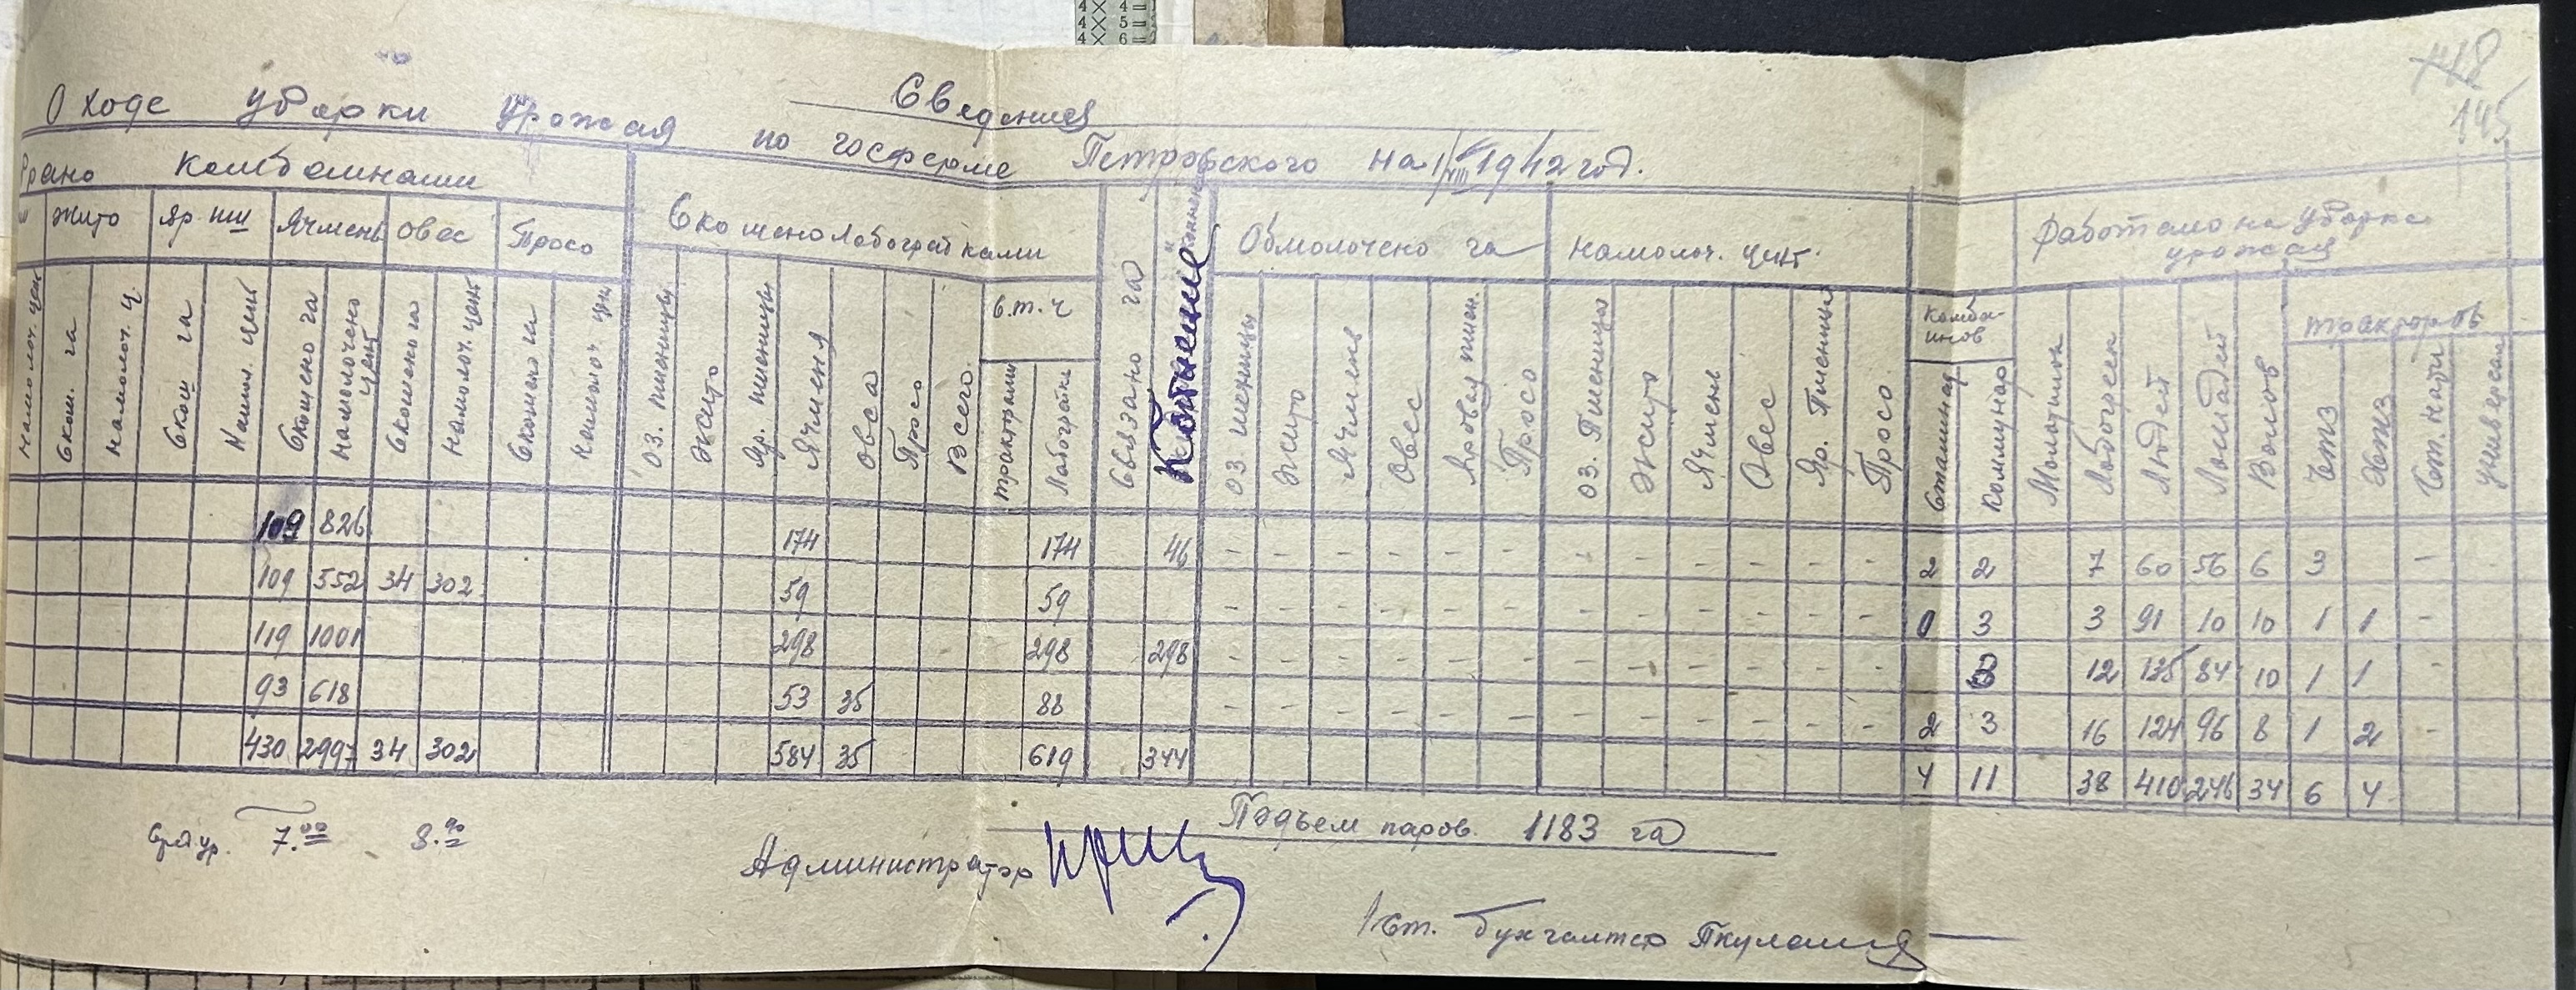 4 × 4 =
4 × 5 =
4 × 6 =
148
145
Сведения
О ходе уборки урожая по госферме Петровского на 1/VIII 1942 год.
Комбайнами
Скошено лобогрейками
Связано га
Копнение
Обмолочено га
Намолоч. цент.
Работало на уборке урожая
Жито
Яр. пш
Ячмень
Овес
Просо
в.т.ч
Комбайнов
тракторов
Намолоч. цен
Скош. га
Намолоч. ц.
Скош га
Намол. цент
Скошено га
Намолочено цент
Скошено га
Намолоч. цент
Скошено га
Намолоч. цен
Оз. пшеницы
Жито
Яр. пшеницы
Ячменя
Овса
Просо
Всего.
Тракторами
Лобогрейка
Оз пшеницы
Жито
Ячмень
Овес
Яровая пшен.
Просо
Оз. Пшеница
Жито
Ячмень
Овес
Яр. Пшеницы
Просо
Сталинец
Коммунар
Молотилка
Лобогреек
Людей
Лошадей
Волов
ЧТЗ
ХТЗ
Ст. Нати
Универсал
109 826 174 174 46 - - - - - - - - - - - - 2 2 7 60 56 6 3 -
109 552 34 302 59 59 - - - - - - - - - - - - 0 3 3 91 10 10 1 1 -
119 1001 298 298 298 - - - - - - - - - - - - 3 12 135 84 10 1 1 -
93 618 53 35 88 - - - - - - - - - - - - 2 3 16 124 96 8 1 2 -
430 2997 34 302 584 35 619 344 4 11 38 410 246 34 6 4
Сред ур. 7.00 8.90
Подъем паров. 1183 га
Администратор
Ст. бухгалтер